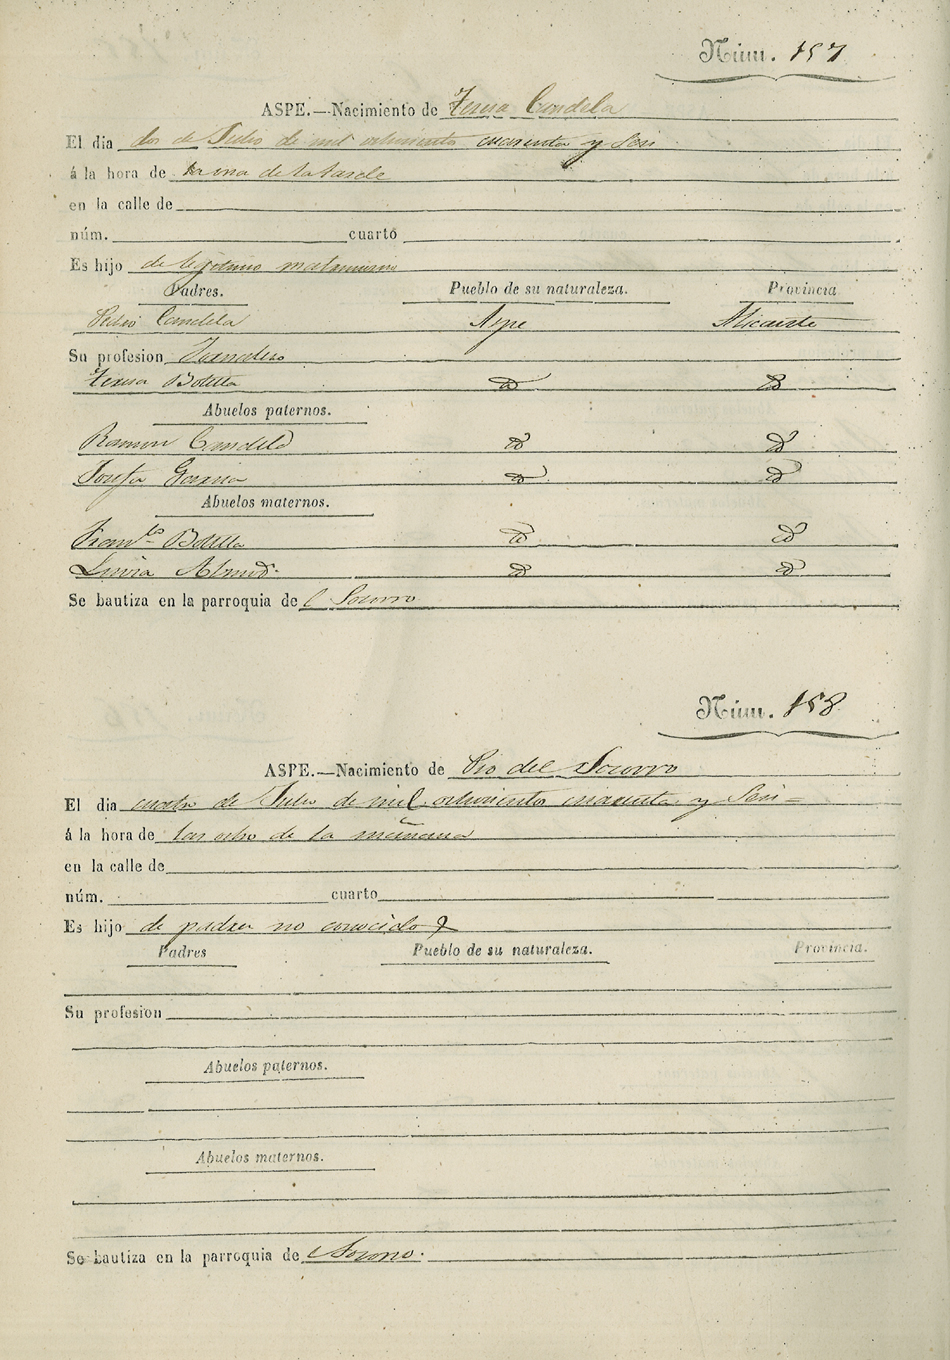 Núm. 157
ASPE.—Nacimiento de Teresa Candela
El dia dos de Julio de mil ochocientos cuarenta y Seis
á la hora de la una de la tarde
en la calle de
núm. cuarto
Es hijo de legitimo matrimonio
Padres. Pueblo de su naturaleza. Provincia
Pedro Candela Aspe Alicante
Su profesion Jornalero
Teresa Botella id id
Abuelos paternos.
Ramon Candela id id
Josefa id id
Abuelos maternos.
Franco Botella id id
Luisa id id
Se bautiza en la parroquia del Socorro
Núm. 158
ASPE.—Nacimiento de Pio del Socorro
El dia cuatro de Julio de mil ochocientos cuarenta y Seis=
á la hora de las ocho de la mañana
en la calle de
núm. cuarto
Es hijo de padres no conocido
Padres Pueblo de su naturaleza. Provincia.
Su profesion
Abuelos paternos.
Abuelos maternos.
Se bautiza en la parroquia de Socorro.